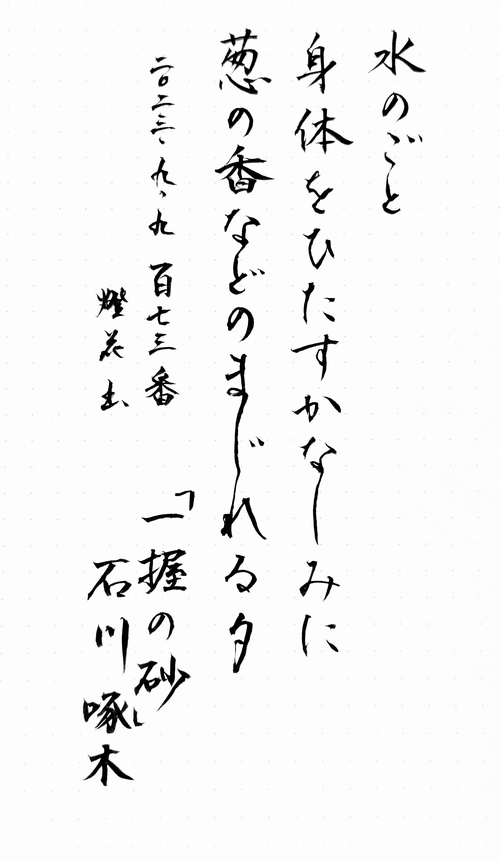 水のごと
身体をひたすかなしみに
葱の香などのまじれる夕
二〇二三、九、九 百七三番
「一握の砂」
燈花
石川啄木